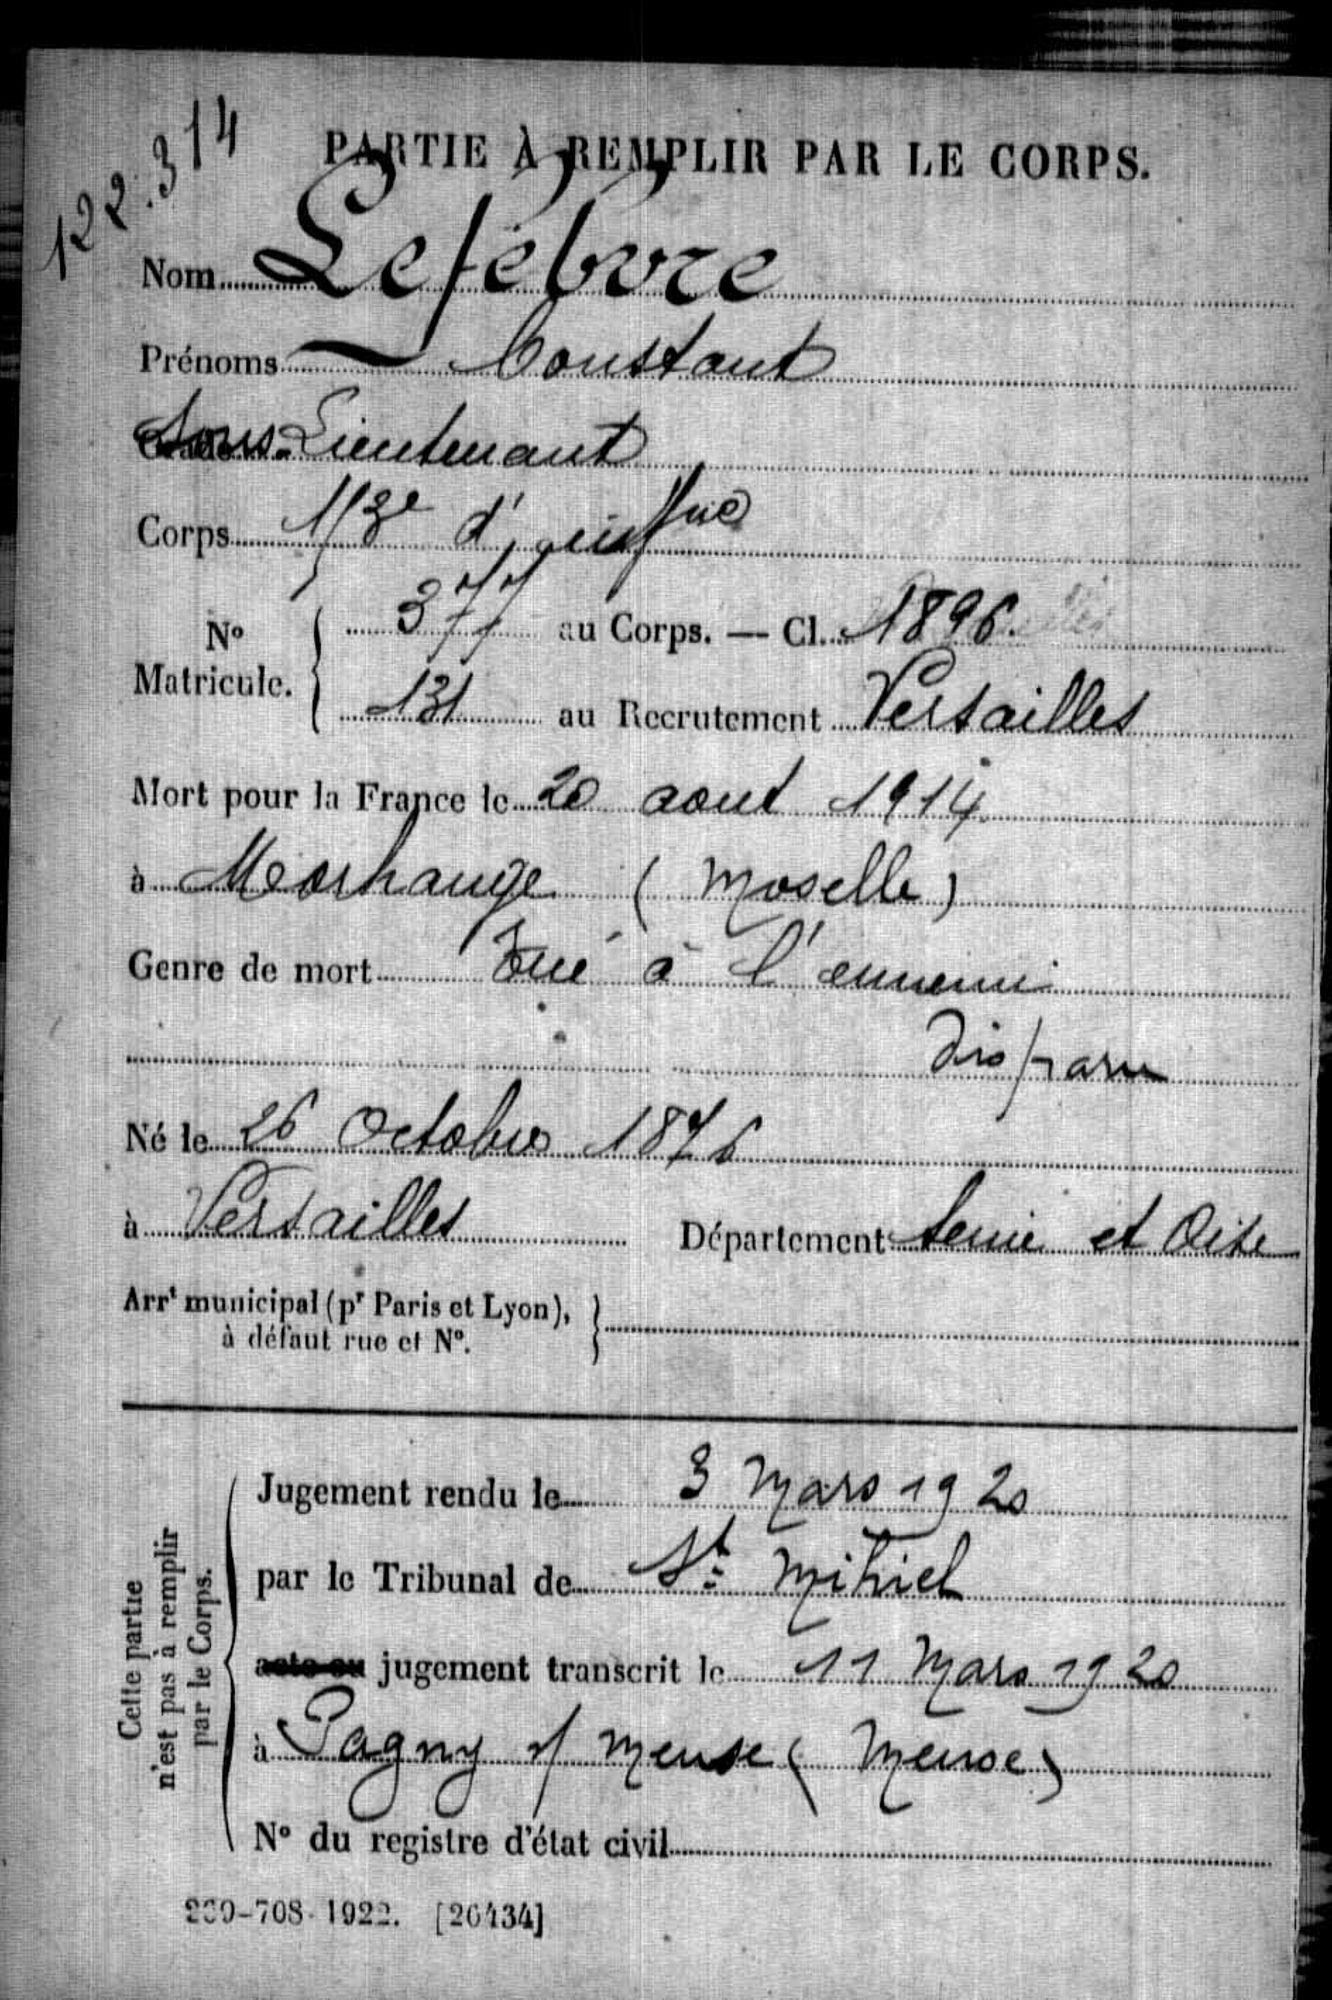 122.314
PARTIE À REMPLIR PAR LE CORPS.
Nom Lefebvre
Prénoms Constant
Sous-Lieutenant
Corps
Nº Matricule. 377 au Corps. — Cl. 1896.
131 au Recrutement Versailles
Mort pour la France le 20 aout 1914
à Morhange (Moselle)
Genre de mort Tué à l'ennemi
disparu
Né le 26 Octobre 1876
à Versailles Département Seine et Oise
Arrt municipal (pr Paris et Lyon),
à défaut rue et Nº.
Cette partie
n'est pas à remplir
par le Corps.
Jugement rendu le 3 Mars 1920
par le Tribunal de St Mihiel
acte ou jugement transcrit le 11 Mars 1920
à Pagny s/ Meuse (Meuse)
Nº du registre d'état civil
-708-1922. [26434]